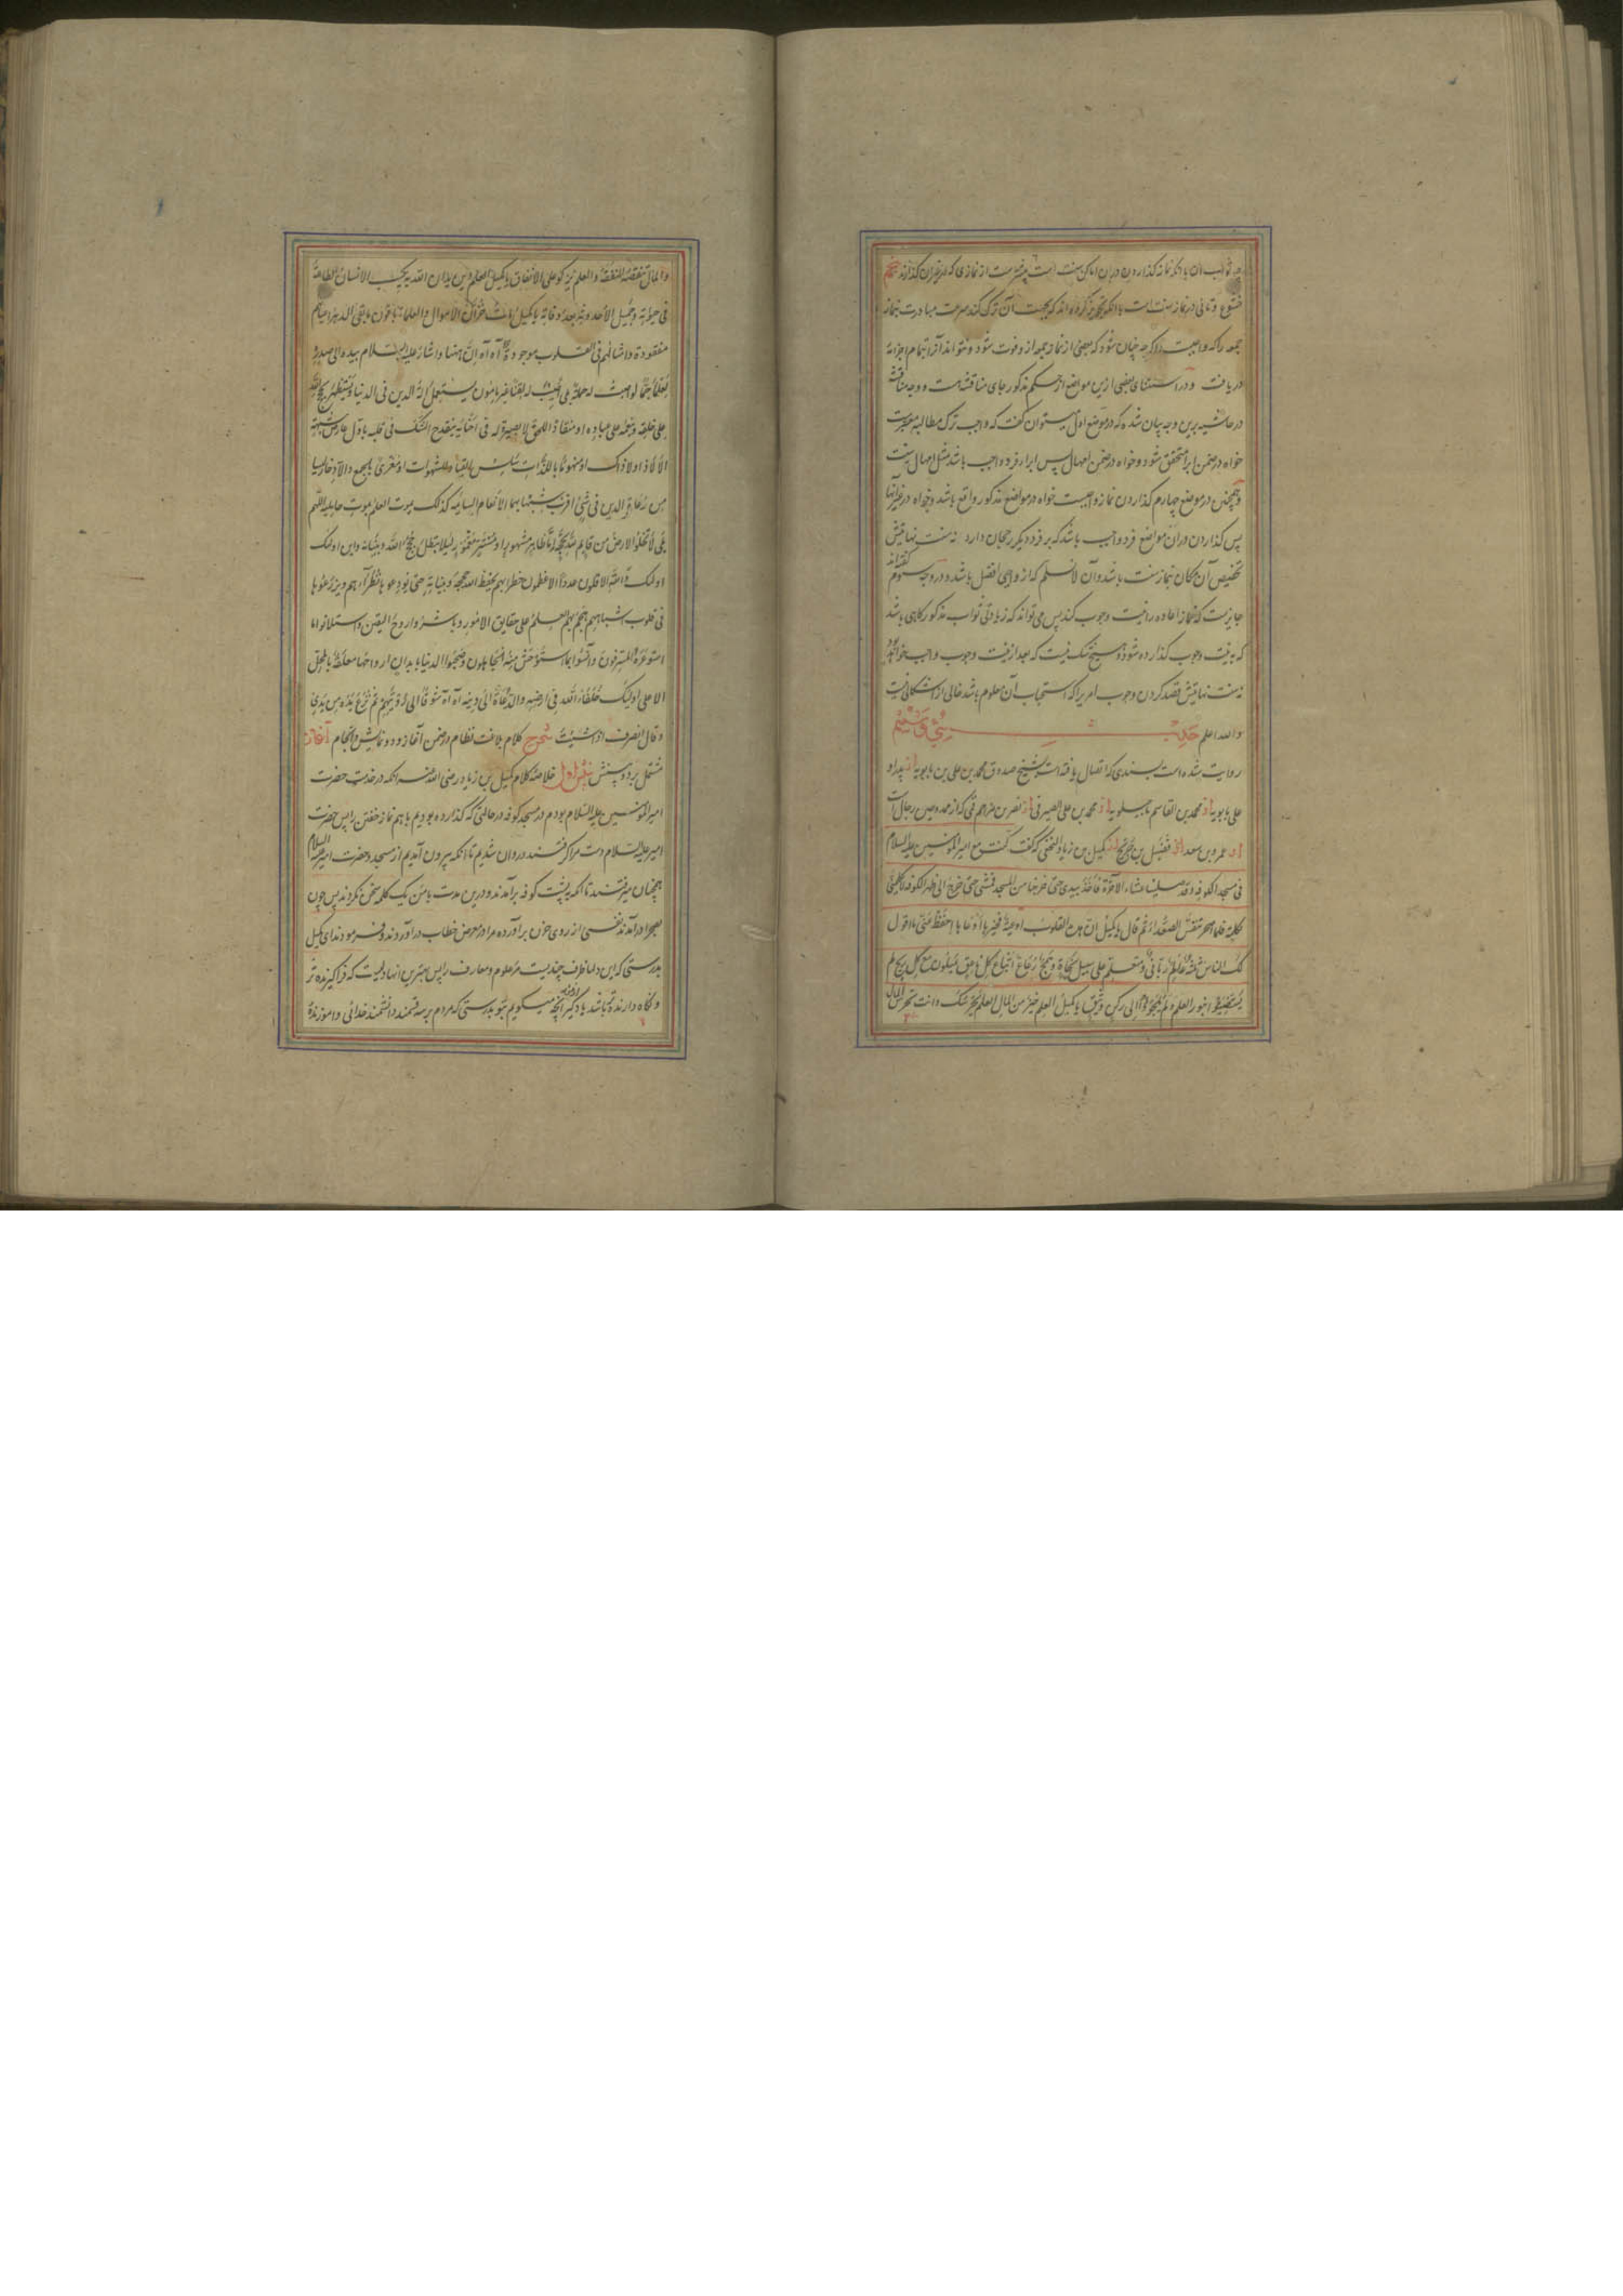 ثواب آن با آنکه نماز گذاردن در آن اماکن سنت است بیشتر است از نمازی که در غیر آن گذارند
خشوع و تأنی در نماز سنت است با آنکه تجویز کرده اند که بجهت آن ترک کند سرعت مبادرت بنماز
جمعه را که واجبست اگر چه چنان شود که بعضی از نماز جمعه از و فوت شود و نتواند آنرا بتمام اجزائه
دریافت و در استثنای بعضی ازین مواضع از حکم مذکور جای مناقشه است و وجه مناقشه
در حاشیه برین وجه بیان شده که در موضع اول میتوان گفت که واجب ترک مطالبه معسر است
خواه در ضمن ابرا متحقق شود و خواه در ضمن امهال پس ابرا فرد واجب باشد مثل امهال نه سنت
و همچنین در موضع چهارم گذاردن نماز واجبست خواه در مواضع مذکور واقع باشد و خواه در غیر آنها
پس گذاردن در آن مواضع فرد واجب باشد که بر فرد دیگر رجحان دارد نه سنت نهایتش
تخصیص آن مکان بنماز سنت باشد و آن لا نسلم که از واجبی افضل باشد و در وجه سیوم گفته اند
جایزست که نماز اعاده را نیت وجوب کند پس می تواند که زیادتی ثواب مذکور گاهی باشد
که به نیت وجوب گذارده شود و هیچ شک نیست که بعد از نیت وجوب واجب خواهد بود
نه سنت نهایتش قصد کردن وجوب امریرا که استحباب آن معلوم باشد خالی از اشکالی نیست
والله اعلم حدیث سی و ششم
روایت شده است بسندی که اتصال یافته است بشیخ صدوق محمد بن علی بن بابویه از پدر او
علی بابویه از محمد بن القاسم ماجیلویه از محمد بن علی الصیرفی از نصر بن مزاحم قمی که از ممدوحین رجال است
از عمرو بن سعد از فضیل بن خدیج از کمیل بن زیاد النخعی که گفت کنت مع امیر المؤمنین علیه السلام
فی مسجد الکوفه و قد صلینا عشاء الآخرة فاخذ بیدی حتی خرجنا من المسجد فمشی حتی خرج الی ظهر الکوفه لا یکلمنی
بکلمة فلما اصحر تنفس الصعداء ثم قال یا کمیل ان هذه القلوب اوعیة فخیرها اوعاها احفظ عنی ما اقول
لک الناس ثلثة عالم ربانی و متعلم علی سبیل نجاة و همج رعاع اتباع کل ناعق یمیلون مع کل ریح لم
یستضیئوا بنور العلم و لم یلجؤا الی رکن وثیق یا کمیل العلم خیر من المال العلم یحرسک وانت تحرس المال
والمال تنقصه النفقة والعلم یزکو علی الانفاق یا کمیل العلم دین یدان الله به یکسب الانسان الطاعة
فی حیوته و جمیل الاحدوثة بعد وفاته یا کمیل مات خزان الاموال والعلماء باقون ما بقی الدهر اعیانهم
مفقودة و امثالهم فی القلوب موجودة آه آه ان ههنا و اشار علیه السلام بیده الی صدره
لعلما جما لو اصبت له حملة بلی اصیب له لقنا غیر مامون یستعمل آلة الدین فی الدنیا و یستظهر بحجج الله
علی خلقه و بنعمه علی عباده او منقادا للحق لا بصیرة له فی احنائه ینقدح الشک فی قلبه باول عارض شبهة
الا لا ذا و لا ذاک او منهوما باللذات سلس القیاد للشهوات او مغری بالجمع والادخار لیسا
من رعاة الدین فی شئ اقرب شبها بهما الانعام السائمه کذلک یموت العلم بموت حاملیه اللهم
بلی لا تخلو الارض من قایم لله بحجة اما ظاهر مشهور او مستتر مغمور لئلا تبطل حجج الله و بیناته و این اولئک
اولئک والله الاقلون عددا الاعظمون خطرا بهم یحفظ الله حججه و بیناته حتی یودعوها نظراءهم و یزرعوها
فی قلوب اشباههم هجم بهم العلم علی حقایق الامور و باشروا روح الیقین و استلانوا ما
استوعره المترفون و آنسوا بما استوحش منه الجاهلون و صحبوا الدنیا بابدان ارواحها معلقة بالمحل
الاعلی اولئک خلفاء الله فی ارضه والدعاة الی دینه آه آه شوقا الی رؤیتهم ثم نزع یده من یدی
و قال انصرف اذا شئت شرح کلام بلاغت نظام در ضمن آغاز و دو نمایش و انجام آغاز
مشتمل بر دو بینش بینش اول خلاصه کلام کمیل بن زیاد رضی الله عنه آنکه در خدمت حضرت
امیر المؤمنین علیه السلام بودم در مسجد کوفه در حالتی که گذارده بودیم با هم نماز خفتن را پس حضرت
امیر علیه السلام دست مرا گرفتند و روان شدیم تا آنکه بیرون آمدیم از مسجد و حضرت امیر علیه السلام
همچنان میرفتند تا آنکه به پشت کوفه برآمدند و درین مدت با من یک کلمه سخن نکردند پس چون
بصحرا درآمدند نفسی از روی حزن برآورده مرا در معرض خطاب درآوردند و فرمودند ای کمیل
بدرستی که این دلها ظرفی چندیست مر علوم و معارف را پس بهترین آنها دلیست که فراگیرنده تر
و نگاه دارنده تر باشد یاد گیر از من آنچه میگویم بتو بدرستی که مردم بر سه قسمند دانشمند خدائی و آموزنده